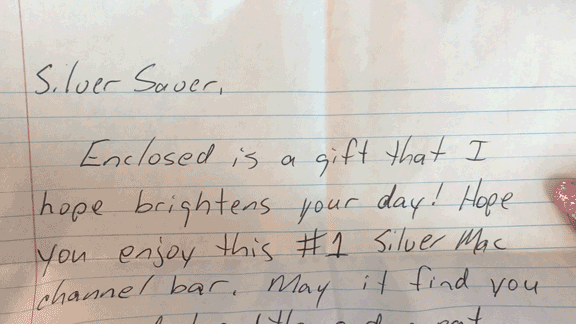 Silver Saver,
Enclosed is a gift that I
hope brightens your day! Hope
you enjoy this #1 Silver Mac
channel bar. May it find you